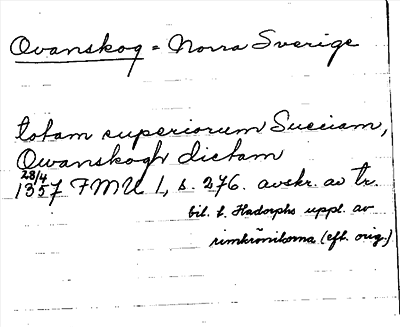 Ovanskog = Norra Sverige
totam superiorum Sueciam,
Owanskogh dictam
28/4
1357 FMU 1, s. 276. avskr. av tr.
bil. t. Hadorphs uppl. av
rimkrönikorna (eft. orig.)